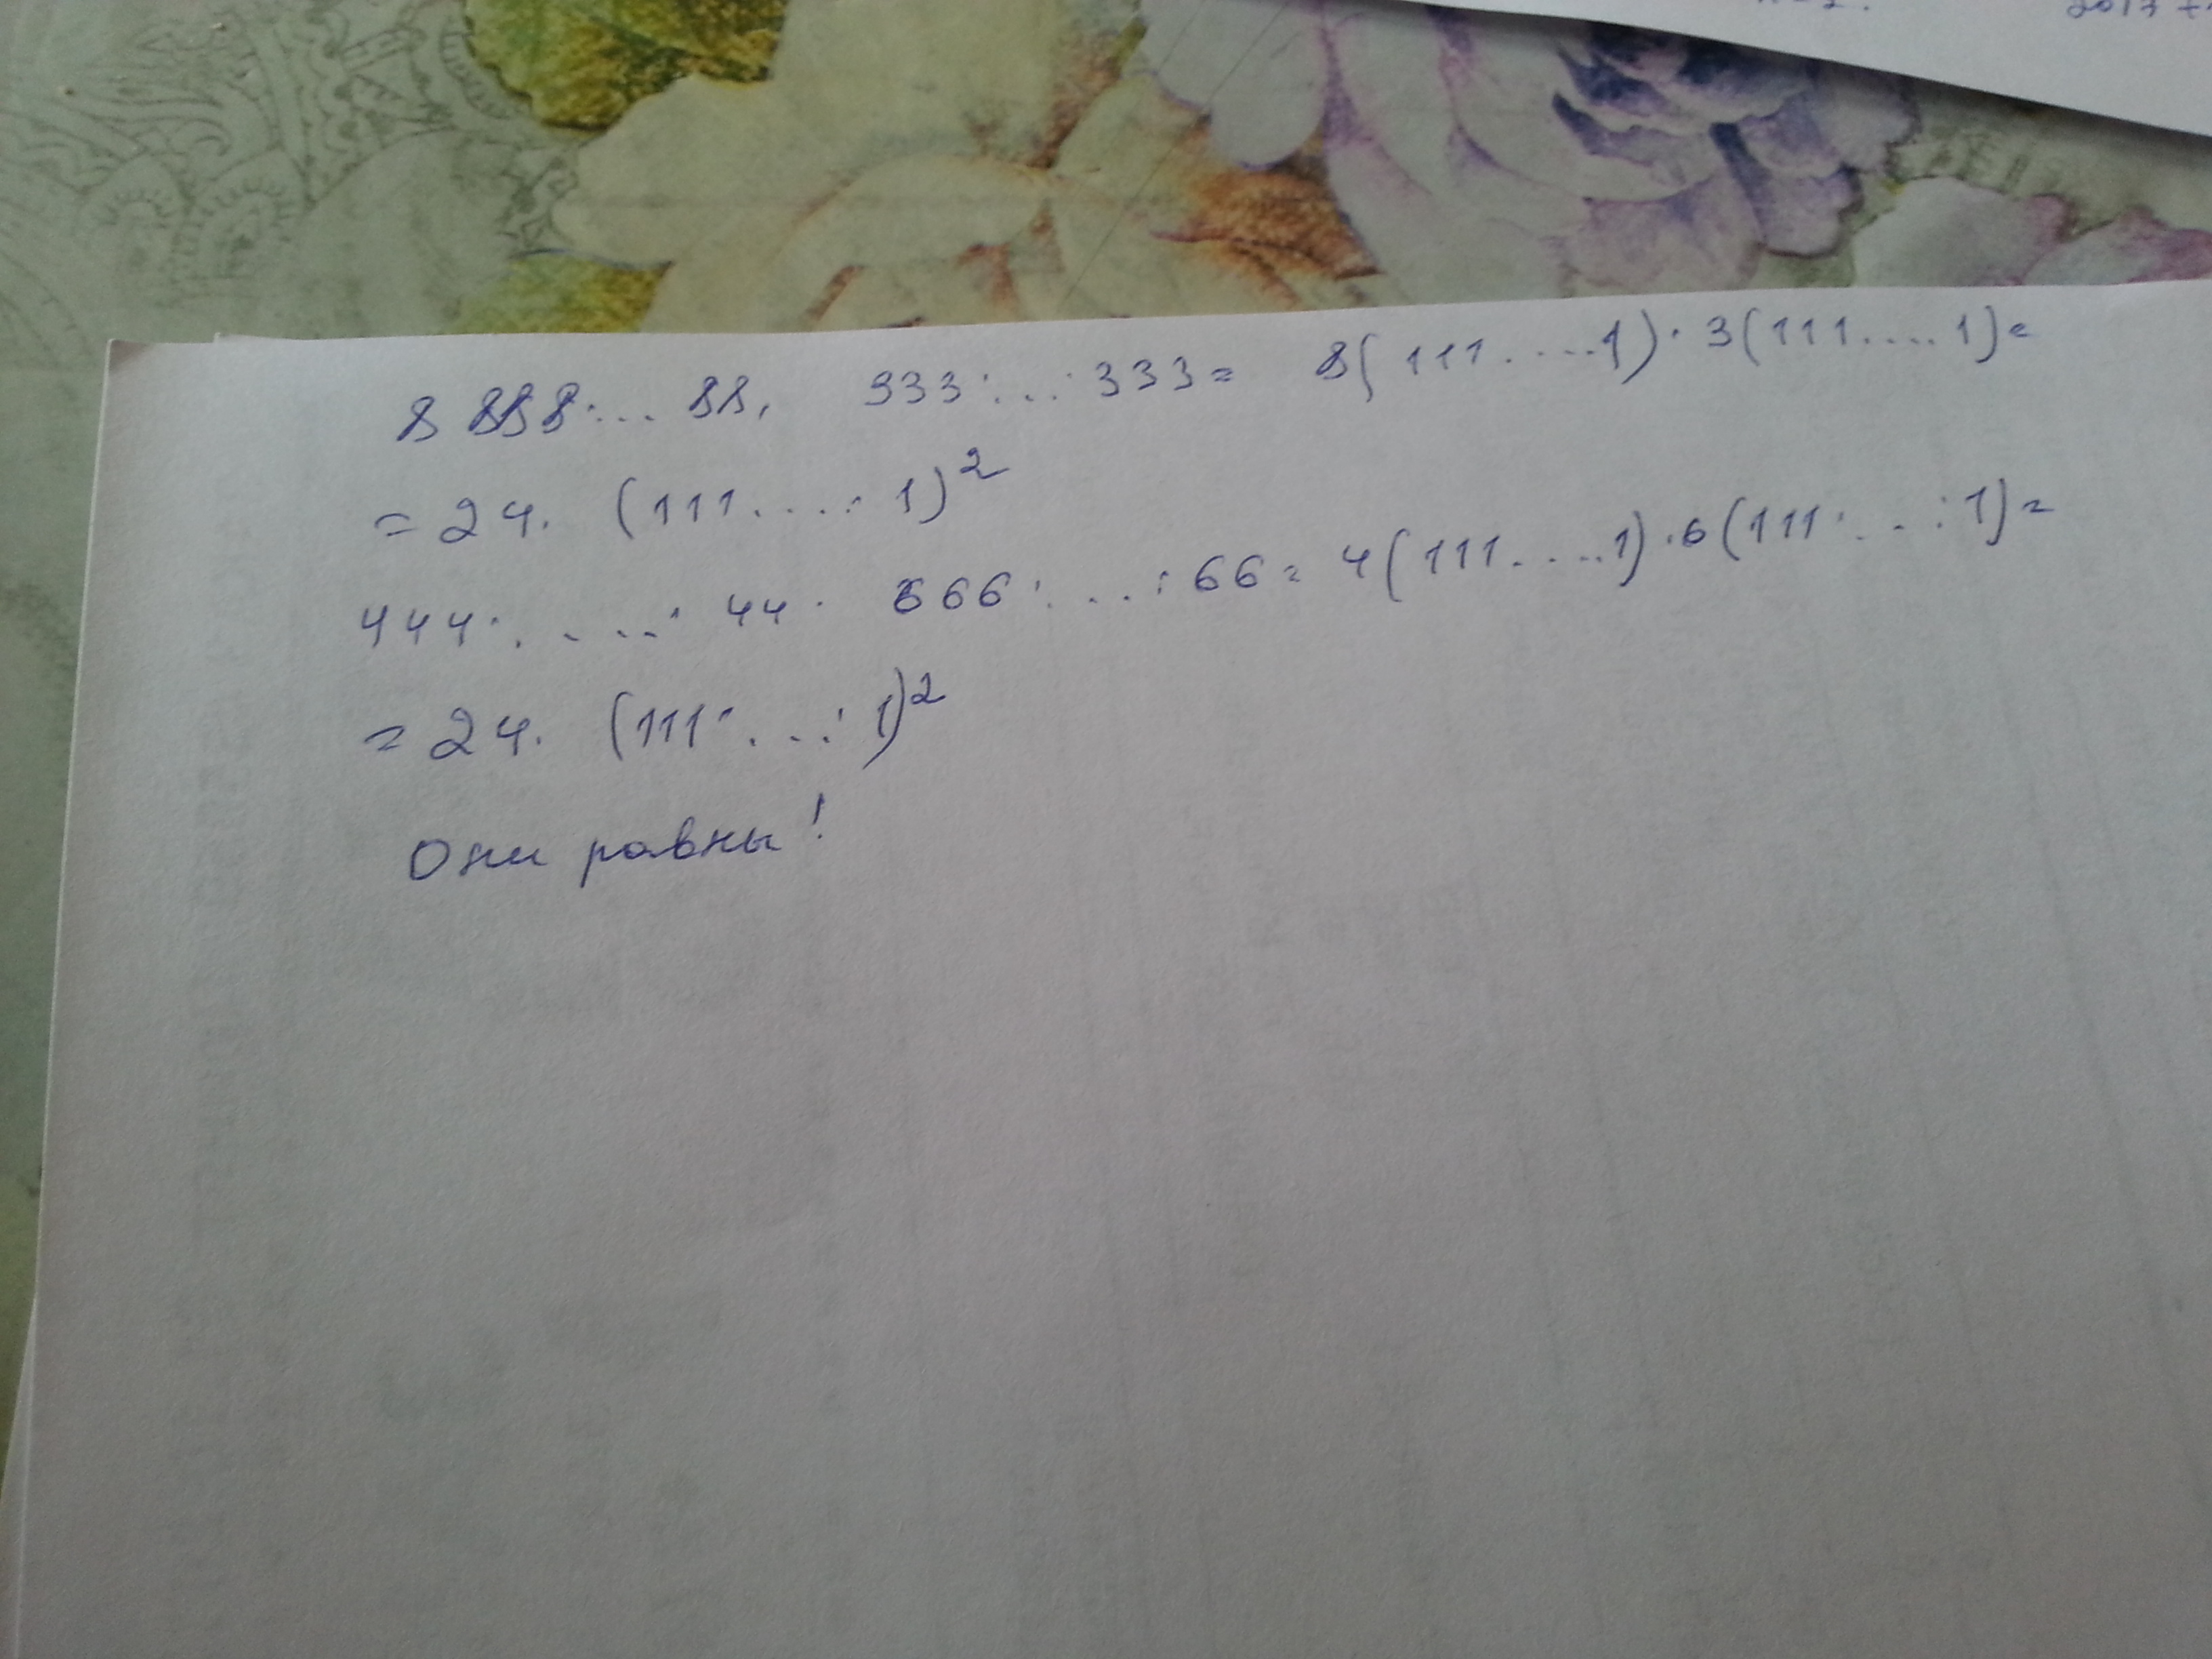 2017
8 888... 88. 333... 333 = 8(111....1)·3(111....1)=
= 24. (111....1)²
444.....44. 666....66 = 4(111....1)·6(111....1)=
= 24. (111....1)²
Они равны!